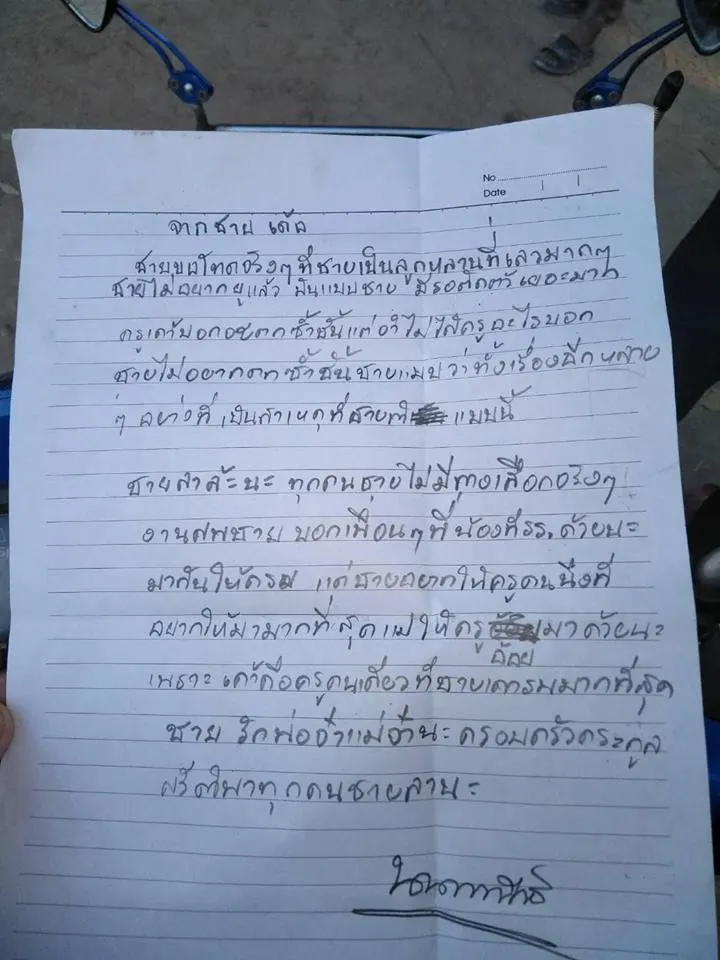 No
Date
จากชาย เด้อ
ชายขอโทดจริงๆที่ชายเป็นลูกหลานที่เลวมากๆ
ชายไม่อยากยู่แล้ว มันแบบชาย มีรอตัดตัวเยอะมาก
ครูเค้าบอกอยตกซ้ำชั้นแต่จำไม่ได้ครูอะไรบอก
ชายไม่อยากตกซ้ำชั้นชายแบบว่าทั้งเรื่องอีกหลาย
ๆ อย่างที่เป็นสาเหตุที่ชาย แบบนี้
ชายลาล่ะนะ ทุกคนชายไม่มีทางเลือกจริงๆ
งานศพชาย บอกเพื่อนๆพี่น้องที่รร.ด้วยนะ
มากันให้ครบ แต่ชายอยากให้ครูคนนึงที่
อยากให้มามากที่สุดแม่ให้ครูอ้อยมาด้วยนะ
เพราะเค้าคือครูคนเดียวที่ชายเคารบมากที่สุด
ชาย รักพ่อจ๋าแม่จ๋านะครอบครัวตระกูล
ทุกคนชายลานะ